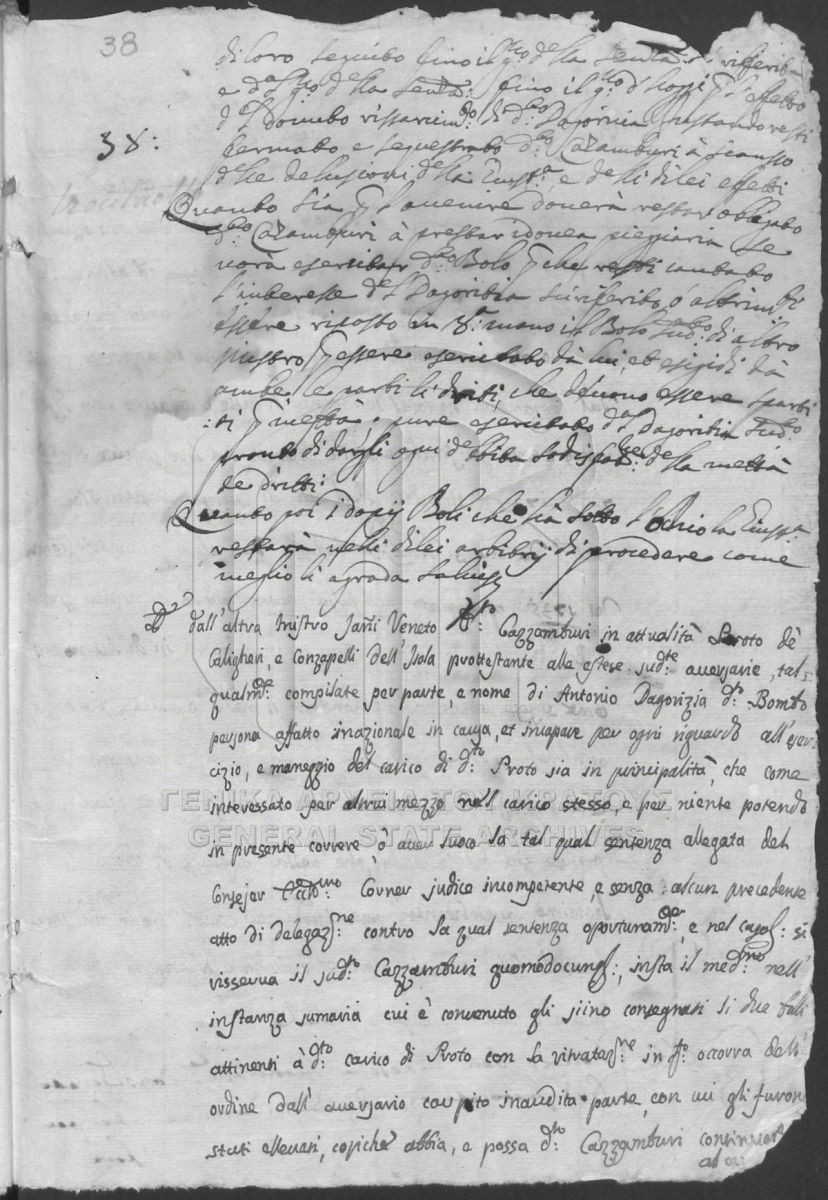 38
di loro seguito fino il g.no della senta
e dal g.no della senta: fino il g.no d'hoggi effetto
38:
fermato e sequestrato d.to Cazamburi à
delle delusioni della e delli di lei effetti
Quando sia l'avenire dovera restar obligato
d.to Cazamburi à prestar idonea pieggiaria se
vorà esercitar d.to Bolo che resti cautato
l'interesse de Dagoritia suriferito, ò altrim.ti
essere riposto in mano il Bolo sud.to di altro
Mistro essere esercitato da lui, et esigidi dà
ambe le parti li dritti, che devono essere sparti
:ti mettà, pure esercitato dal Dagoritia sud.to
pronto di dargli ogni debbita sodisfat.ne della mettà
de dritti:
Quando poi i doppij Boli che sia sotto l'ochio la
restarà nelli di lei arbitrij di procedere come
meglio li agrada
dall'altra Mistro Janni Veneto Cazzamburi in attualità Proto de
Caligheri, e Conzapelli dell'Isola prottestante alle estese sud.te aversarie, tal:
qualm.te compilate per parte, e nome di Antonio Dagorizia d.to Bombo
persona affatto inazionale in causa, et incapace per ogni riguardo all'eser-
cizio, e maneggio del carico di d.to Proto sia in principalità, che come
interessato per altrui mezzo nell carico stesso, e per niente potendo
ΓΕΝΙΚΑ ΑΡΧΕΙΑ ΤΟΥ ΚΡΑΤΟΥΣ
GENERAL STATE ARCHIVES
in presente correre, ò aver luoco la tal qual sentenza allegata del
Consejer Ecc.mo Corner judice incompetente, e senza alcun precedente
atto di delegaz.ne contro la qual sentenza oporturam.te, e nel caso si
risserva il sud.to Cazzamburi quomodocunq:, insta il med.mo nell'
instanza sumaria cui è convenuto gli siino consegnati li due balli
attinenti à d.to carico di Proto con la ritrataz.ne in q.to occorra dell'
ordine dall' aversario carpito inaudita parte, con cui gli furon
stati ellevati, cosiche abbia, e possa d.to Cazzamburi continuare